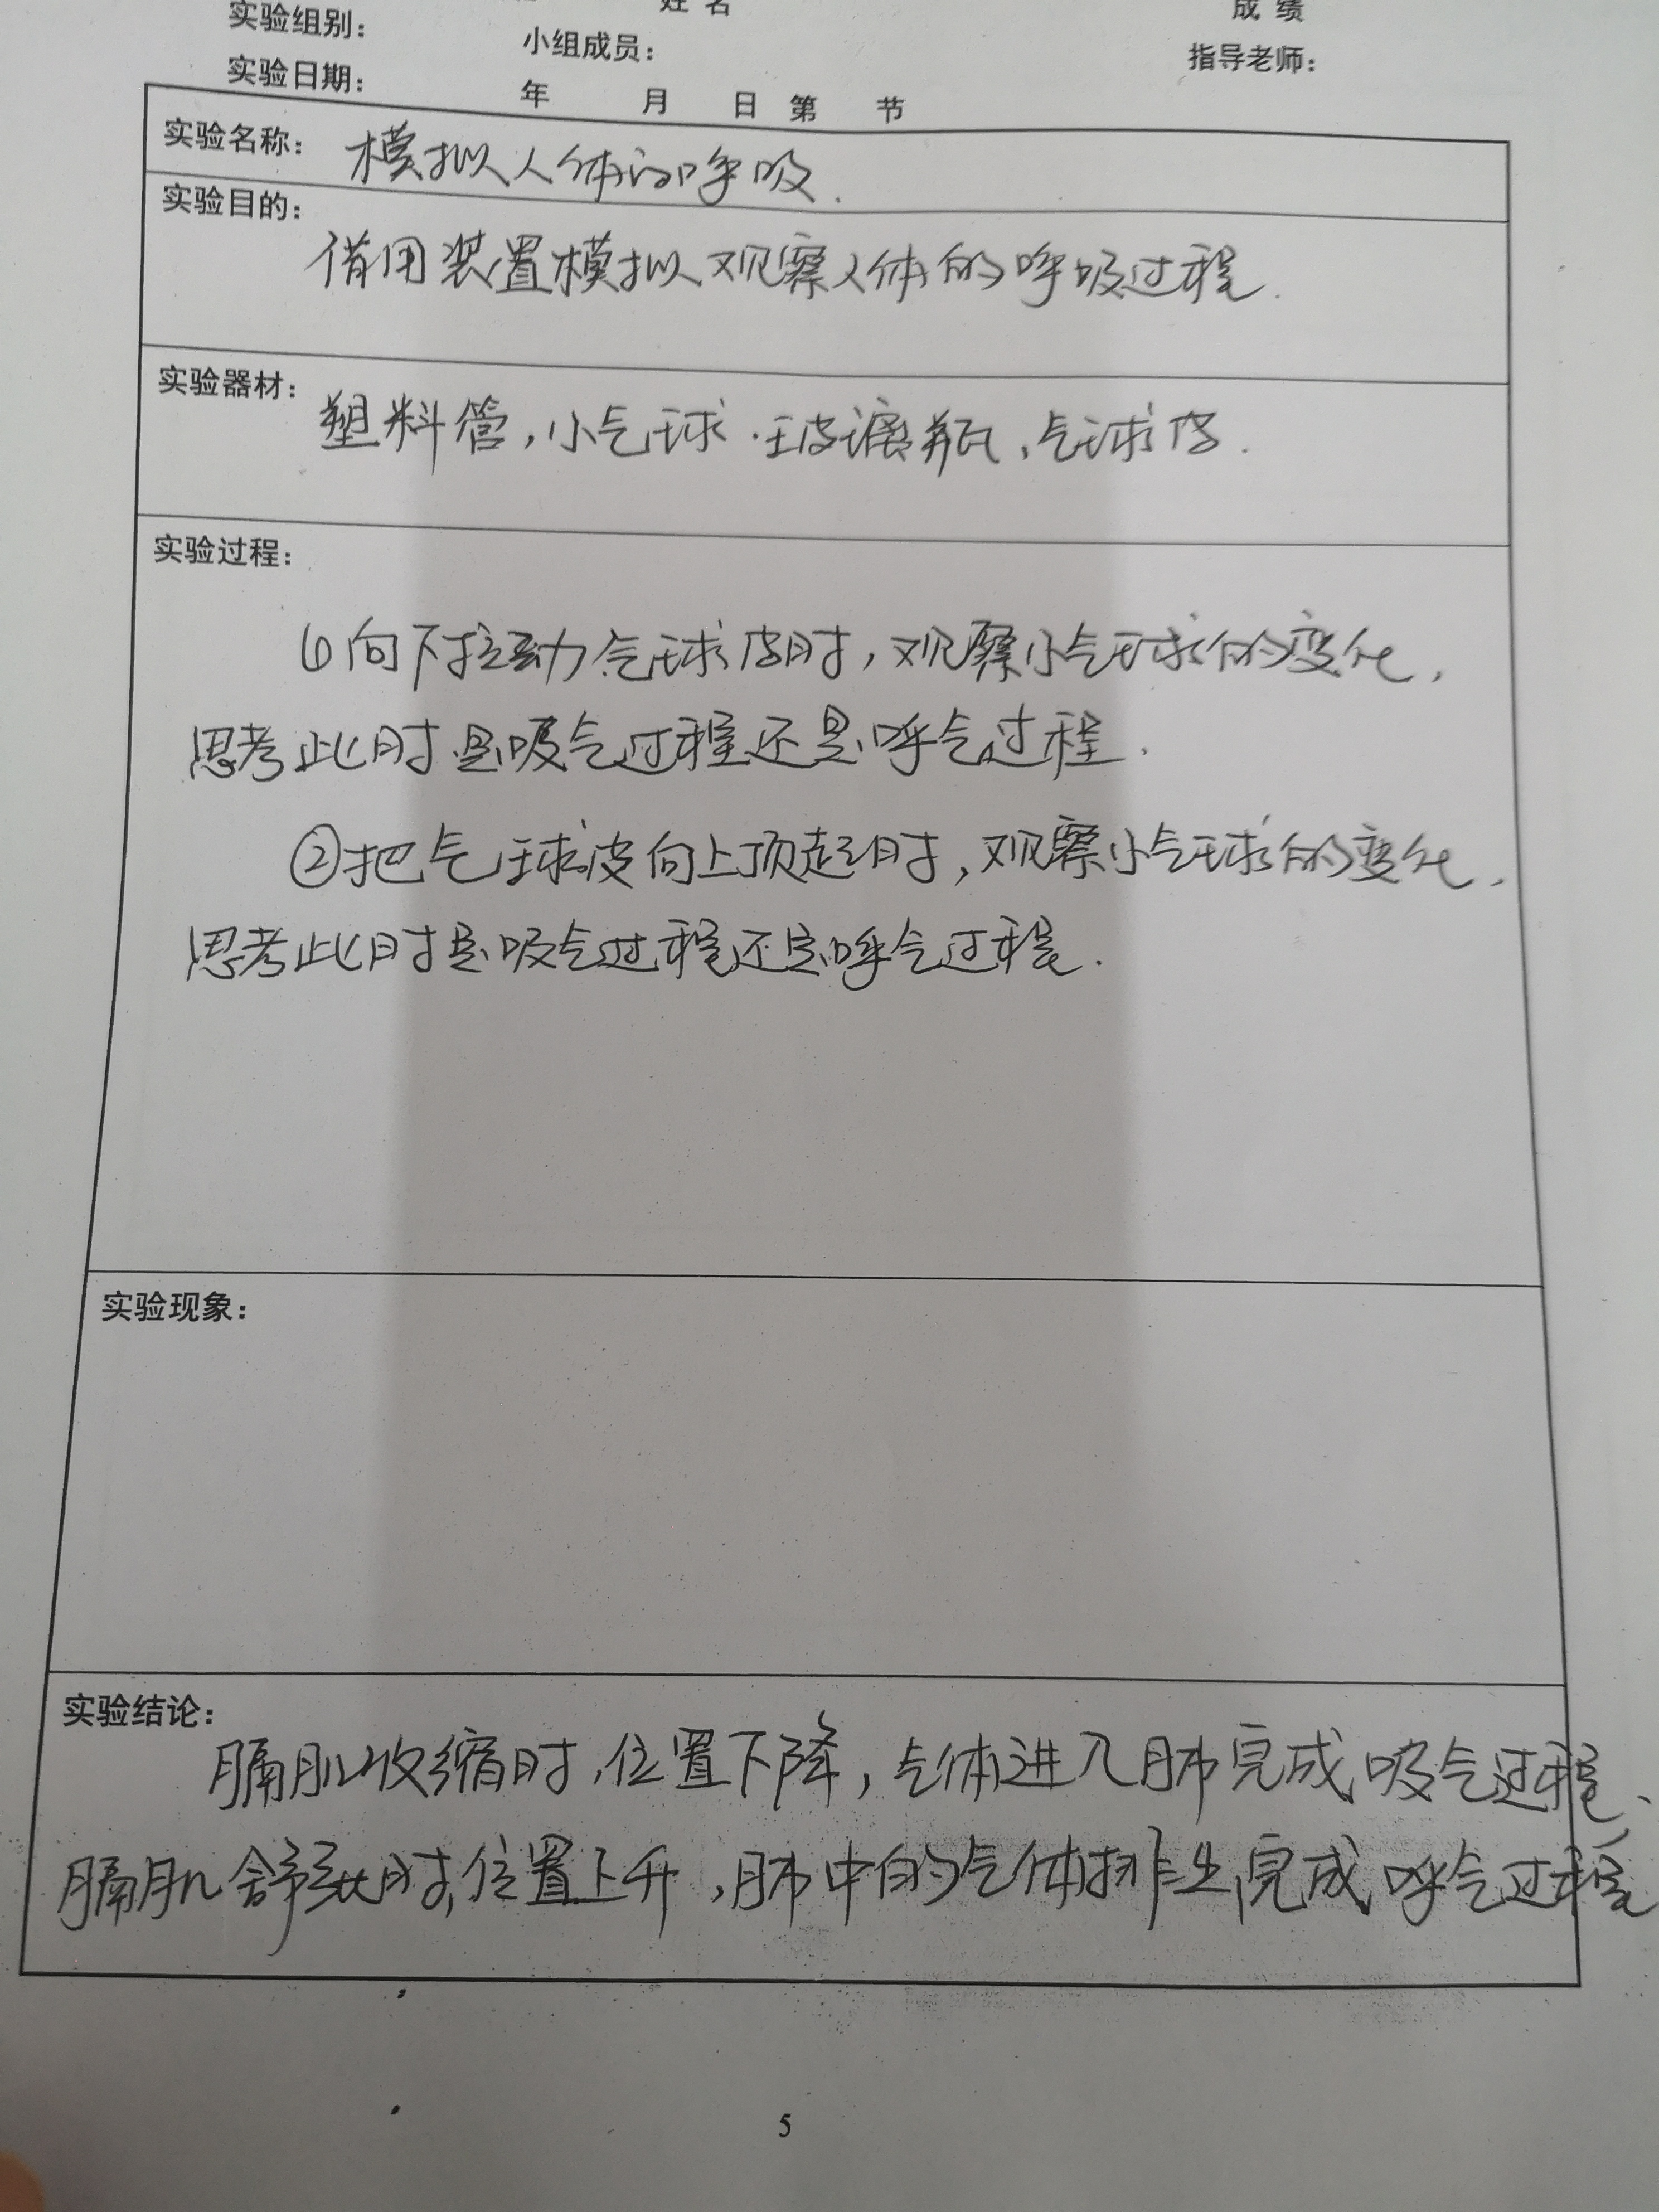 姓名
成绩
实验组别：
小组成员：
指导老师：
实验日期： 年 月 日 第 节
实验名称： 模拟人体的呼吸.
实验目的：
借用装置模拟观察人体的呼吸过程.
实验器材： 塑料管,小气球.玻璃瓶,气球皮.
实验过程：
①向下拉动气球皮时,观察小气球的变化,
思考此时是吸气过程还是呼气过程.
②把气球皮向上顶起时,观察小气球的变化,
思考此时是吸气过程还是呼气过程.
实验现象：
实验结论：
膈肌收缩时,位置下降,气体进入肺完成吸气过程、
膈肌舒张时,位置上升,肺中的气体排出,完成呼气过程
5